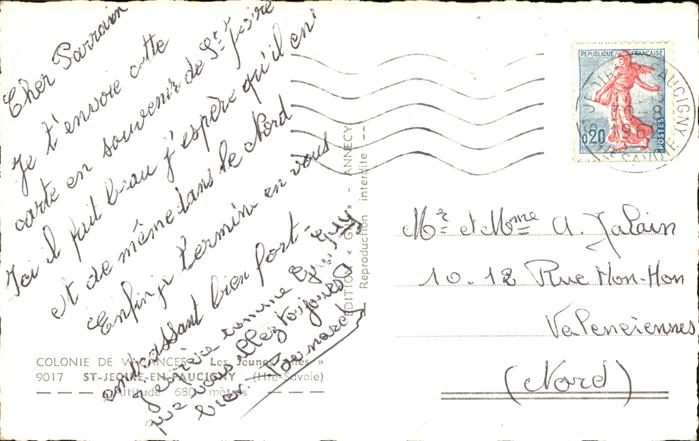 Cher Parrain
Je t'envoie cette
carte en souvenir de St Jeoire
Ici il fait beau j'espère qu'il en
et de même dans le Nord
Enfin je termine en vous
embrassant bien fort
J'espère comme Guy
que vous allez toujours
bien. Bernard
COLONIE DE VACANCES « Les Jeunes Ailes »
9017 ST-JEOIRE-EN-FAUCIGNY (Hte-Savoie)
Altitude 680 mètres
EDITIONS GY - ANNECY
Reproduction interdite
REPUBLIQUE FRANCAISE
0,20
POSTES
FAUCIGNY
HTE SAVOIE
Mr et Mme A.
10.12 Rue Mon-Mon
Valenciennes
(Nord)